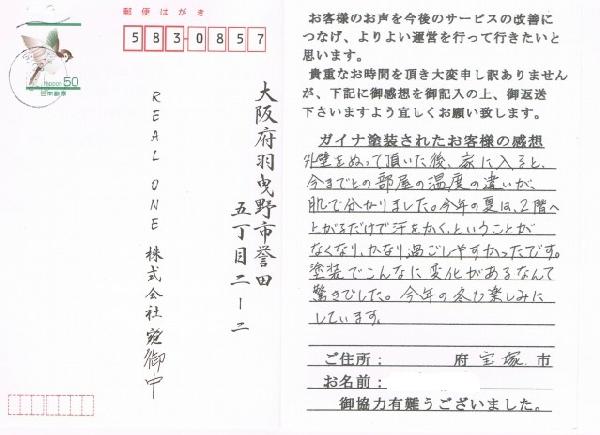 郵便はがき
583-0857
NIPPON
50
日本郵便
大阪府羽曳野市誉田
五丁目二ー二
REAL ONE 株式会社 宛 御中
お客様のお声を今後のサービスの改善に
つなげ、よりよい運営を行って行きたいと
思います。
貴重なお時間を頂き大変申し訳ありません
が、下記に御感想を御記入の上、御返送
下さいますよう宜しくお願い致します。
ガイナ塗装されたお客様の感想
外壁をぬって頂いた後、家に入ると、
今までとの部屋の温度の違いが、
肌で分かりました。今年の夏は、2階へ
上がるだけで汗をかく、ということが
なくなり、かなり過ごしやすかったです。
塗装でこんなに変化があるなんて
驚きでした。今年の冬も楽しみに
しています。
ご住所： 府 宝塚 市
お名前：
御協力有難うございました。